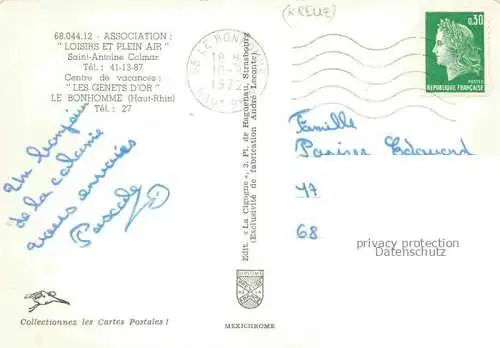 68.044.12 - ASSOCIATION :
"LOISIRS ET PLEIN AIR"
Saint-Antoine Colmar
Tél. : 41-13-87
Centre de vacances :
"LES GENETS D'OR"
LE BONHOMME (Haut-Rhin)
Tél. : 27
Un bonjour
de la colonie
vous envoies
Pascale
Collectionnez les Cartes Postales !
Edit. « La Cigogne », 3, Pl. de Haguenau, Strasbourg
(Exclusivité de fabrication André Leconte)
MEXICHROME
68 LE BONHOMME
18 H
1972
0,30
POSTES
REPUBLIQUE FRANÇAISE
Famille
Edouard
47
68
privacy protection
Datenschutz